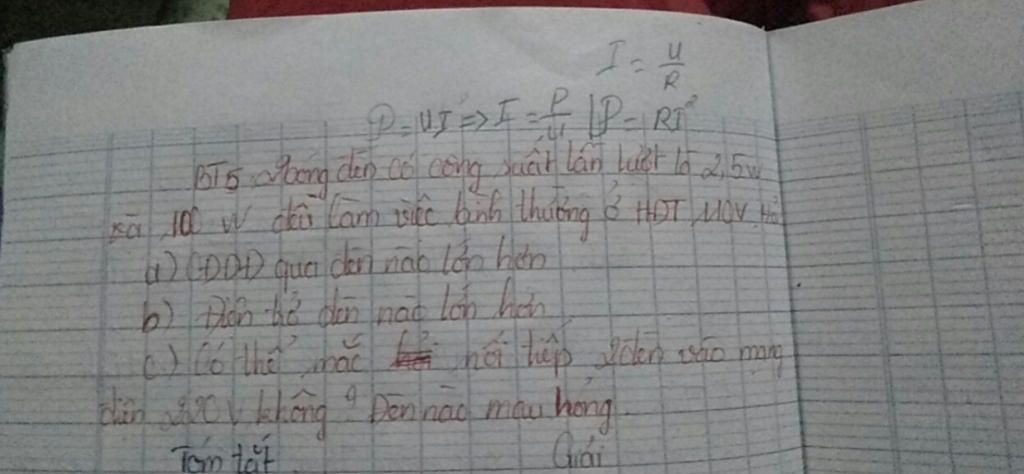 I = U/R
P = UI => I = P/U | P = RI²
BT5 2 bóng đèn có công suất lần lượt là 2,5w
và 100 W đều làm việc bình thường ở HĐT 110V Hỏi
a) CĐDĐ qua đèn nào lớn hơn
b) Điện trở đèn nào lớn hơn
c) Có thể mắc nối tiếp 2 đèn vào mạng
điện 220V không ? Đèn nào mau hỏng
Tóm tắt Giải